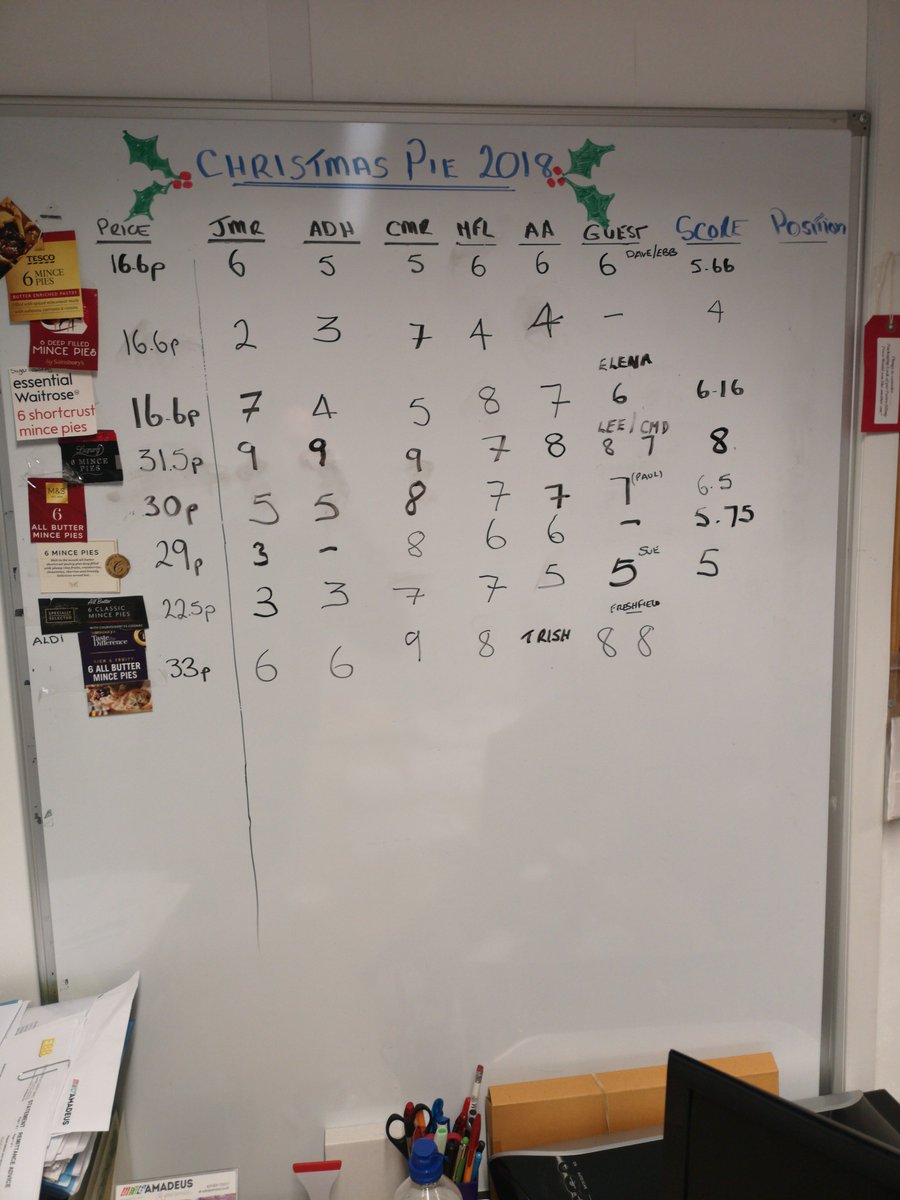 CHRISTMAS PIE 2018
PRICE JMR ADH CMR MFL AA GUEST SCORE Position
TESCO
6 MINCE PIES
BUTTER ENRICHED PASTRY
16.6p 6 5 5 6 6 6 DAVE/EBB 5.66
6 DEEP FILLED
MINCE PIES
by Sainsbury's
16.6p 2 3 7 4 4 - 4
essential
Waitrose
6 shortcrust
mince pies
ELENA
16.6p 7 4 5 8 7 6 6.16
Luxury
6 MINCE
PIES
LEE/CMD
31.5p 9 9 9 7 8 8 7 8.
M&S
6
ALL BUTTER
MINCE PIES
30p 5 5 8 7 7 7 (PAUL) 6.5
6 MINCE PIES
29p 3 - 8 6 6 - 5.75
SPECIALLY
SELECTED
All Butter
6 CLASSIC
MINCE PIES
22.5p 3 3 7 7 5 5 SUE 5
ALDI
Taste the
Difference
6 ALL BUTTER
MINCE PIES
FRESHFIELD
33p 6 6 9 8 TRISH 8 8
EBB
AMADEUS
STATEMENT
REMITTANCE ADVICE
AMADEUS